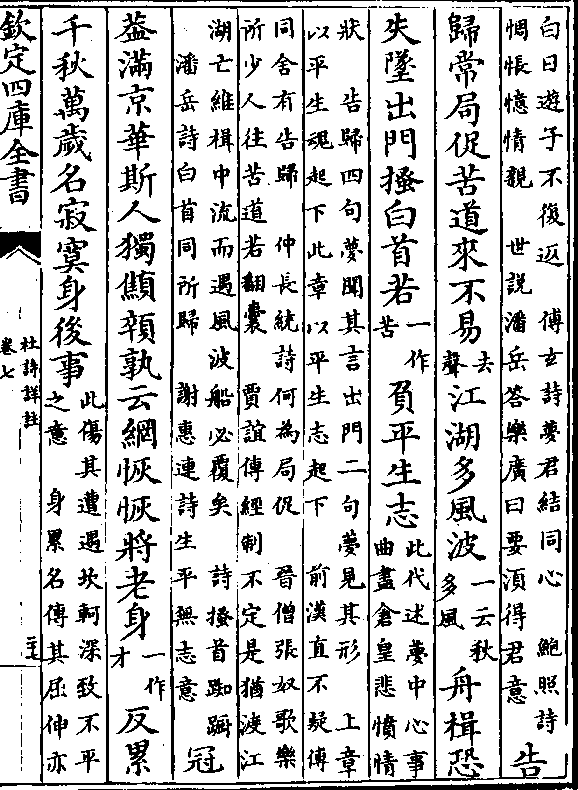 白日遊子不復返　傅玄詩夢君結同心　鮑照詩
惆悵憶情貌　世説潘岳答樂廣曰要須得君意
告
歸常局促苦道來不易
去
聲
江湖多風波
一云秋
多風
舟楫恐
失墜出門搔白首若
一作
苦
負平生志
此代述夢中心事
曲盡倉皇悲憤情
狀　告歸四句夢聞其言出門二句夢見其形　上章
以平生魂起下此章以平生志起下　前漢直不疑傳
同舍有告歸　仲長統詩何為局促　晉僧張奴歌樂
所少人往苦道若翻囊　賈誼傳經制不定是猶渡江
湖亡維楫中流而遇風波船必覆矣　詩搔首踟躕
潘岳詩白首同所歸　謝惠連詩生平無志意
冠
葢滿京華斯人獨顦顇孰云網恢恢將老身
一作
才
反累
千秋萬歲名寂寞身後事
此傷其遭遇坎軻深致不平
之意　身累名傳其屈伸亦
欽定四庫全書
杜詩詳註
卷七